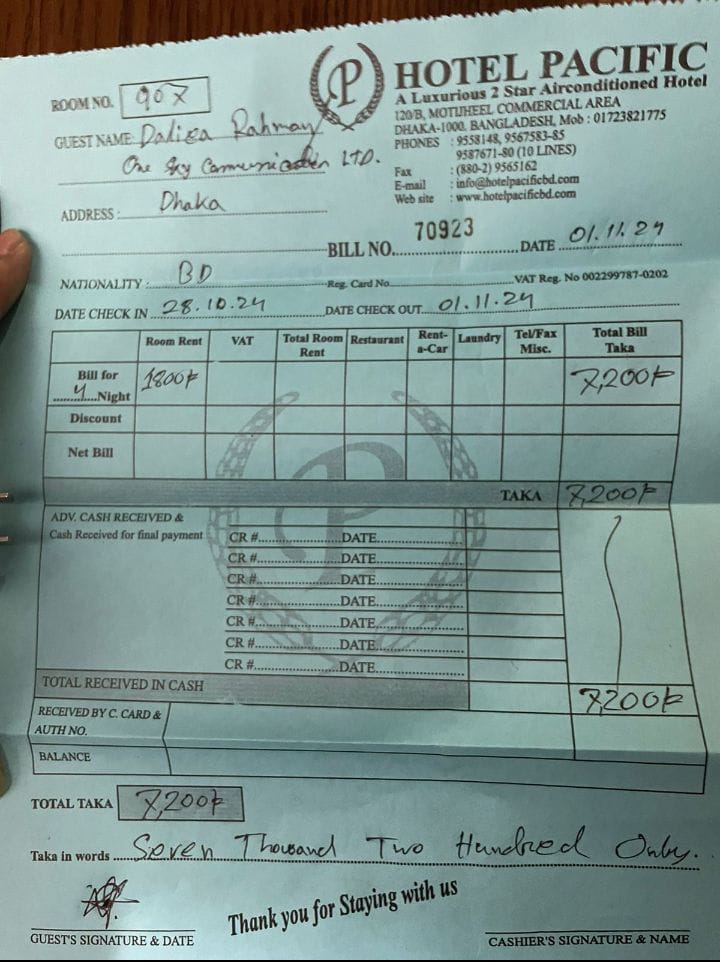 P
HOTEL PACIFIC
A Luxurious 2 Star Airconditioned Hotel
120/B, MOTIJHEEL COMMERCIAL AREA
DHAKA-1000. BANGLADESH, Mob : 01723821775
PHONES : 9558148, 9567583-85
9587671-80 (10 LINES)
Fax : (880-2) 9565162
E-mail : info@hotelpacificbd.com
Web site : www.hotelpacificbd.com
ROOM NO. 907
GUEST NAME: Rahman
One Sky Communication LTD.
ADDRESS : Dhaka
BILL NO. 70923 DATE 01.11.24
NATIONALITY : BD Reg. Card No. VAT Reg. No 002299787-0202
DATE CHECK IN 28.10.24 DATE CHECK OUT 01.11.24
Room Rent VAT Total Room Rent Restaurant Rent-a-Car Laundry Tel/Fax Misc. Total Bill Taka
Bill for 4 Night 1800/- 7,200/-
Discount
Net Bill
TAKA 7,200/-
ADV. CASH RECEIVED &
Cash Received for final payment CR # DATE
CR # DATE
CR # DATE
CR # DATE
CR # DATE
CR # DATE
CR # DATE
TOTAL RECEIVED IN CASH 7,200/-
RECEIVED BY C. CARD &
AUTH NO.
BALANCE
TOTAL TAKA 7,200/-
Taka in words Seven Thousand Two Hundred Only.
Thank you for Staying with us
GUEST'S SIGNATURE & DATE CASHIER'S SIGNATURE & NAME